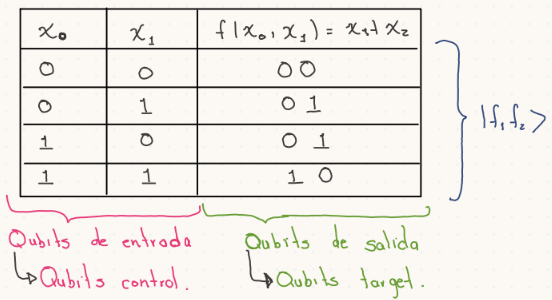 x₀ x₁ f(x₀, x₁) = x₁+x₂
0 0 00
0 1 01
1 0 01
1 1 10
|f₁f₂>
Qubits de entrada
↳Qubits control.
Qubits de salida
↳Qubits target.